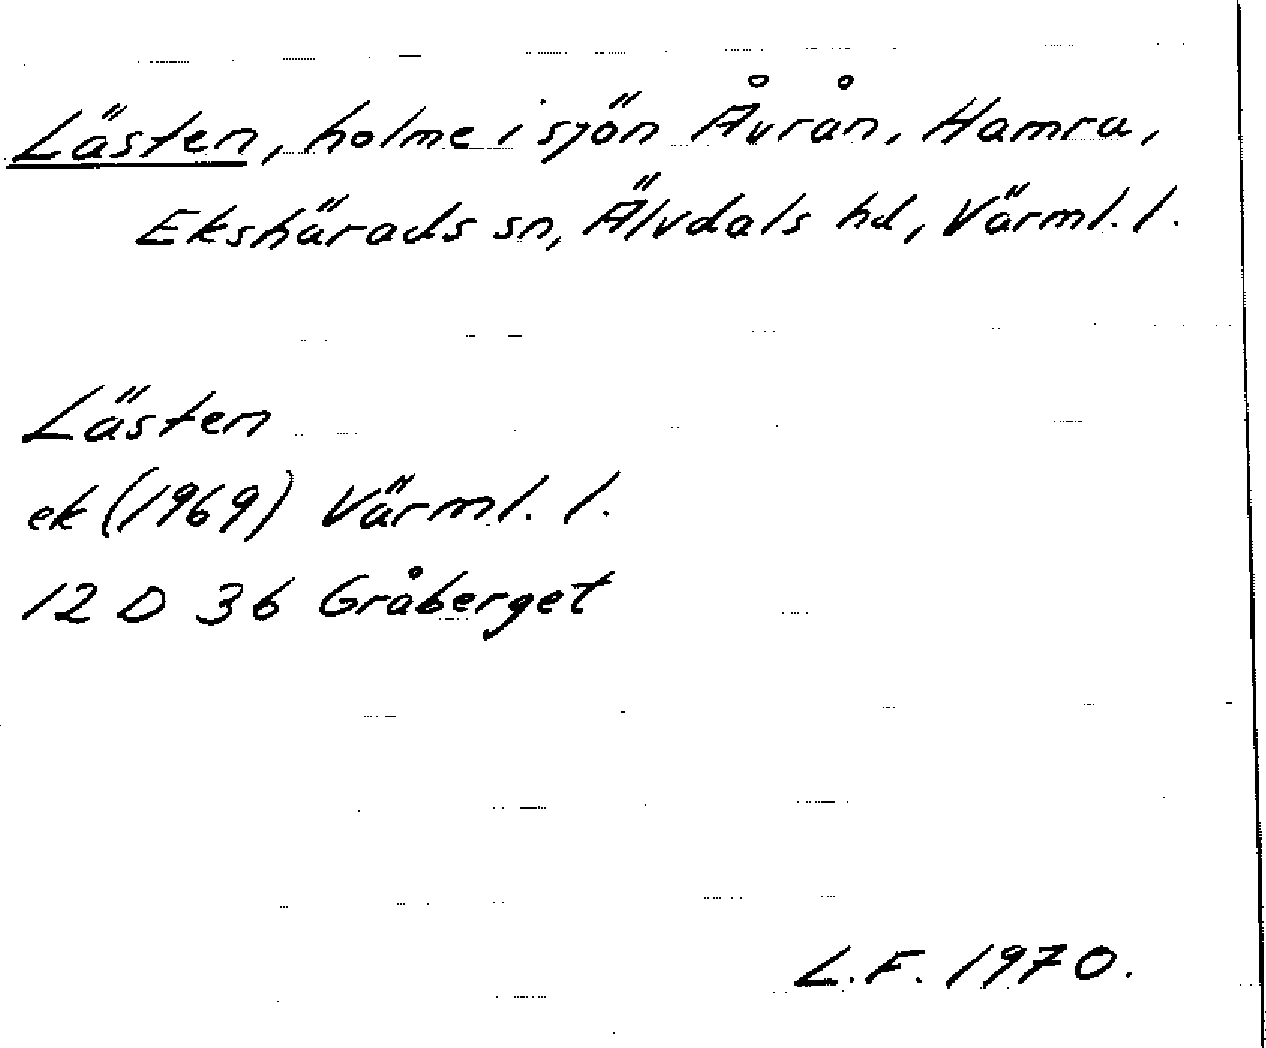 Lästen, holme i sjön Åvrån, Hamra,
Ekshärads sn, Älvdals hd, Värml. l.
Lästen
ek (1969) Värml. l.
12 D 3b Gråberget
L.F. 1970.